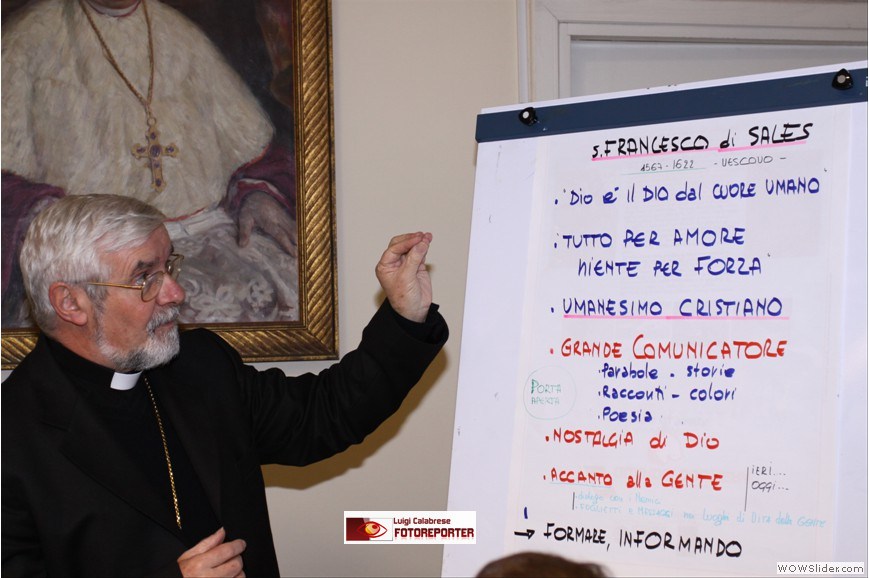 S. FRANCESCO di SALES
1567-1622 - VESCOVO -
. "DIO è IL DIO dal CUORE UMANO"
. "TUTTO PER AMORE
NIENTE PER FORZA"
. UMANESIMO CRISTIANO
. GRANDE COMUNICATORE
. Parabole - storie
. Racconti - colori
. Poesia
PORTA
APERTA
. NOSTALGIA di DIO
. ACCANTO alla GENTE
IERI...
OGGI...
dialogo con i
FOGLIETTI e MESSAGGI nei luoghi di VITA della GENTE
→ FORMARE, INFORMANDO
Luigi Calabrese
FOTOREPORTER
WOWSlider.com